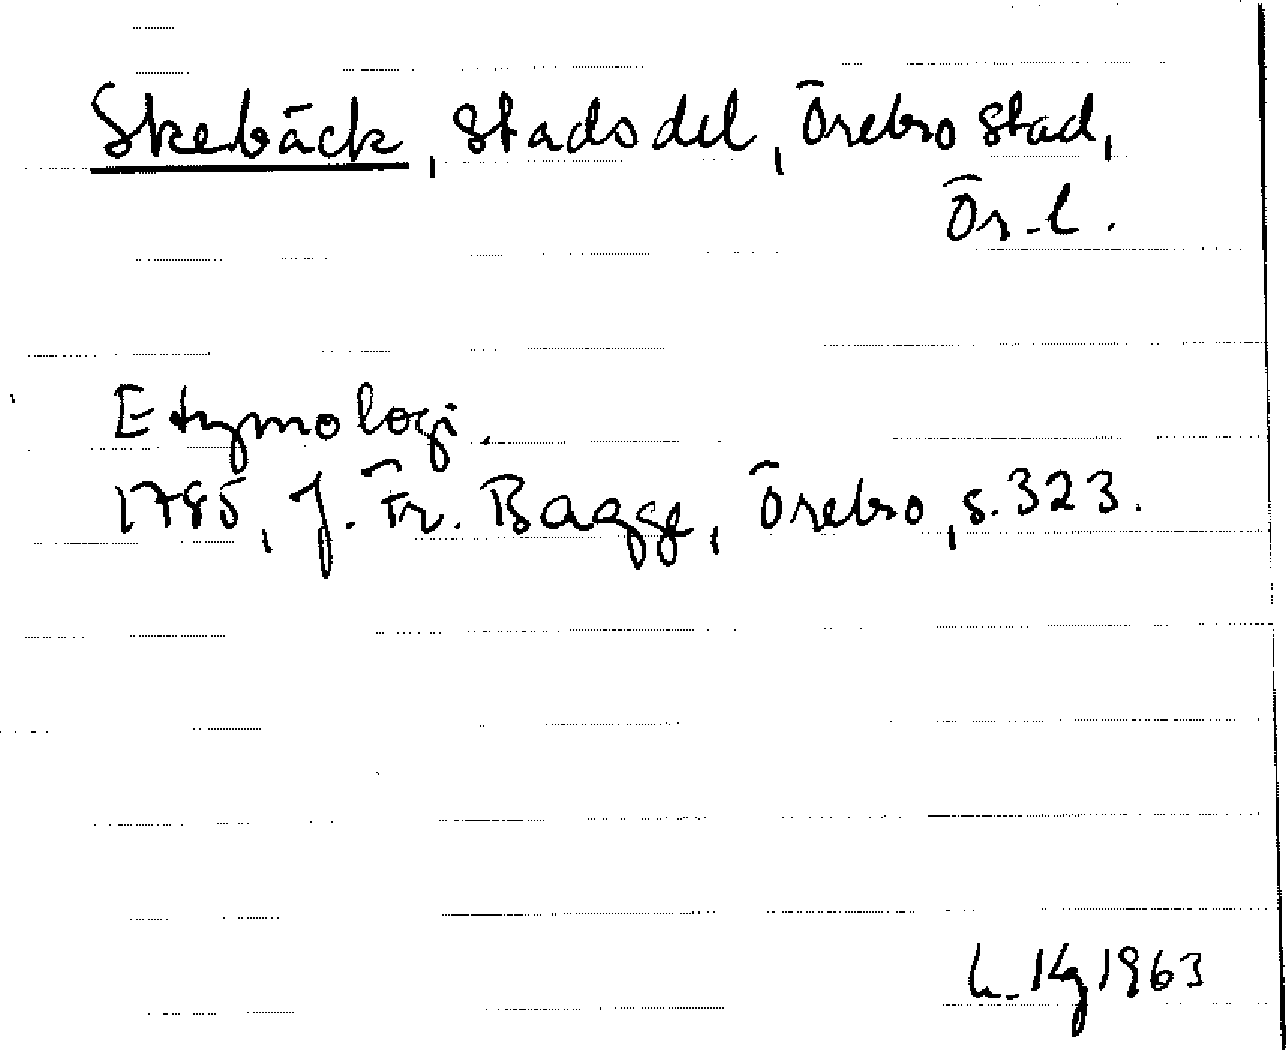 Skebäck, Stadsdel, Örebro stad,
Ör. l.
Etymologi.
1785, J. Fr. Bagge, Örebro, s. 323.
1963